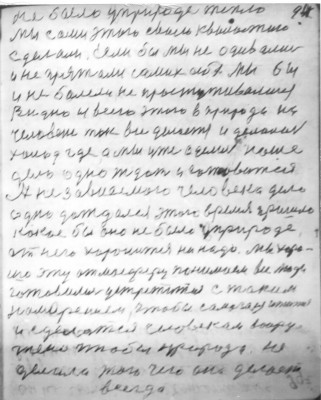 не было в природе тепло 94
мы сами этого своего
сделали. Если бы мы не одевали
и не прятали самих себя мы б и
и не болели не простуживались
Видно и всего этого в природе на
человека так все делается и делалось
холод где а мы уже сделали наше
дело одно ждать и готовится
А независимого человека дело
одно дождался этого время пришло
какое бы оно не было в природе,
от него хоронится не надо. Мы хоро-
шо эту атмосферу понимаем все люди
готовились встретится с таким
намерением, чтобы
и сделаться человеком
чтобы природа не
делала того чего она делает
всегда